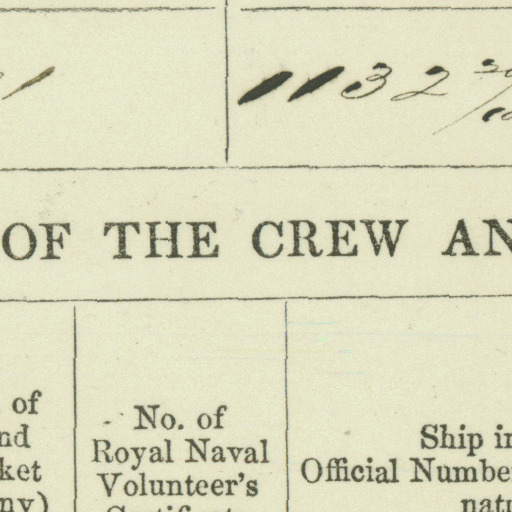 1132
OF THE CREW AN
of
nd
ket
ny)
No. of
Royal Naval
Volunteer's
Certificate
Ship in
Official Numbe
natu